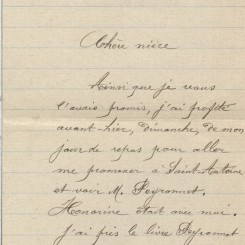 Chère nièce
Ainsi que je vous
l'avais promis, j'ai profité
avant-hier, dimanche, de mon
jour de repos pour aller
me promener à Saint-Antoine
et voir M. Peyronnet.
Honorine était avec moi.
J'ai pris le livre Peyronnet